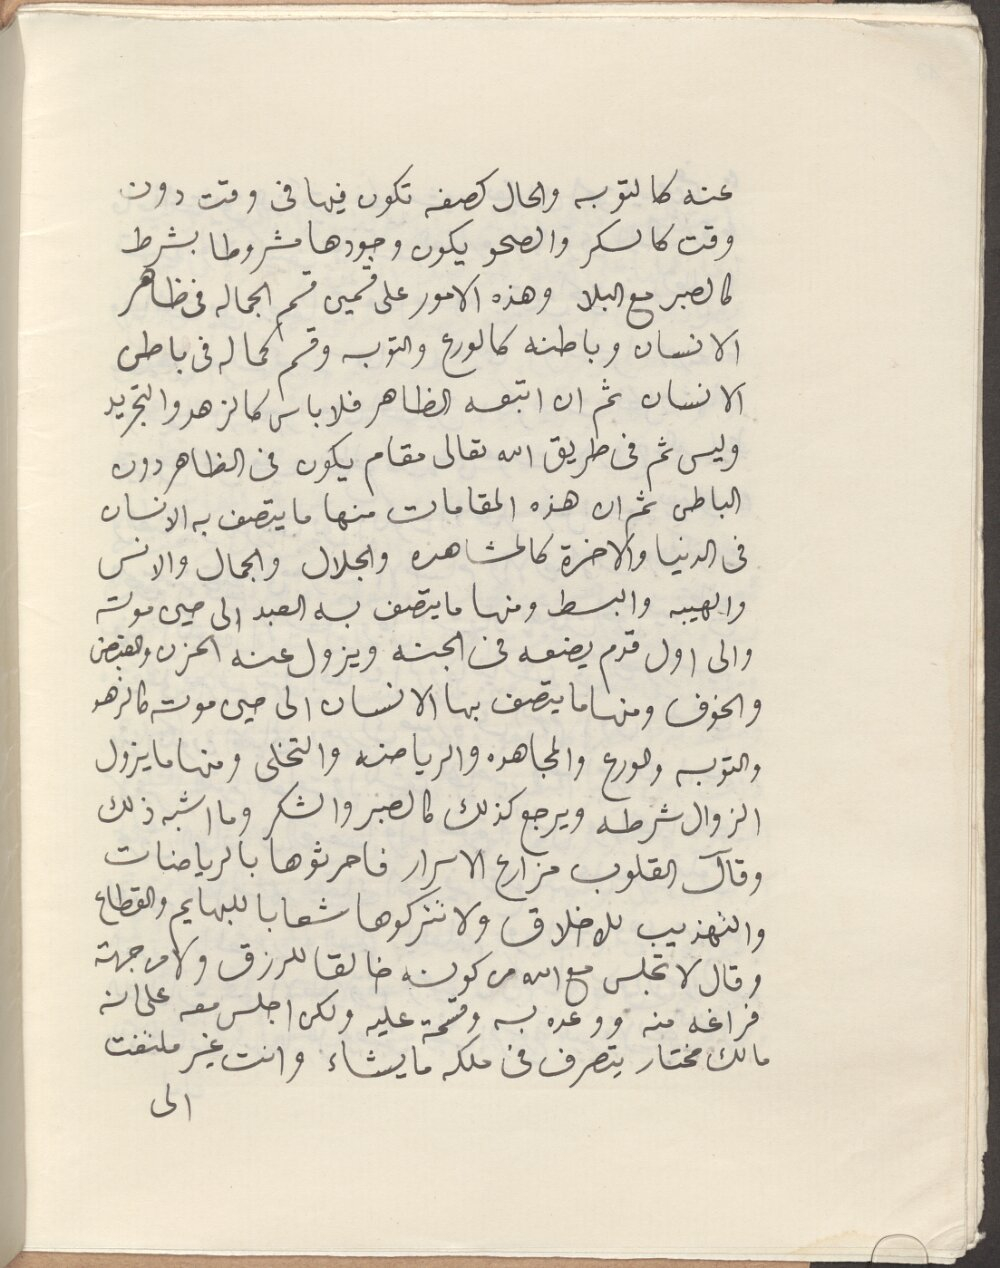 عنه كالتوبه والحال كصفه تكون فيها فى وقت دون
وقت كالسكر والصحو يكون وجودها مشروطا بشرط
كالصبر مع البلا وهذه الامور على قسمين قسم كماله فى ظاهر
الانسان وباطنه كالورع والتوبه وقسم كماله فى باطن
الانسان ثم ان اتبعه الظاهر فلا باس كالزهد والتجريد
وليس ثم فى طريق الله تعالى مقام يكون فى الظاهر دون
الباطن ثم ان هذه المقامات منها ما يتصف به الانسان
فى الدنيا والاخرة كالمشاهده والجلال والجمال والانس
والهيبه والبسط ومنها ما يتصف به العبد الى حين موته
والى اول قدم يضعه فى الجنه ويزول عنه الحزن والقبض
والخوف ومنها ما يتصف بها الانسان الى حين موته كالزهد
والتوبه والورع والمجاهده والرياضه والتخلى ومنها ما يزول
الزوال شرطه ويرجع كذلك كالصبر والشكر وما اشبه ذلك
وقال القلوب مزارع الاسرار فاحرثوها بالرياضات
والتهذيب للاخلاق ولا تتركوها شعابا للبهايم والقطاع
وقال لا تجلس مع الله من كونه خالقا للرزق ولا من جهة
فراغه منه ووعده به وقسمة عليه ولكن اجلس معه على انه
مالك مختار يتصرف فى ملكه ما يشاء وانت غير ملتفت
الى